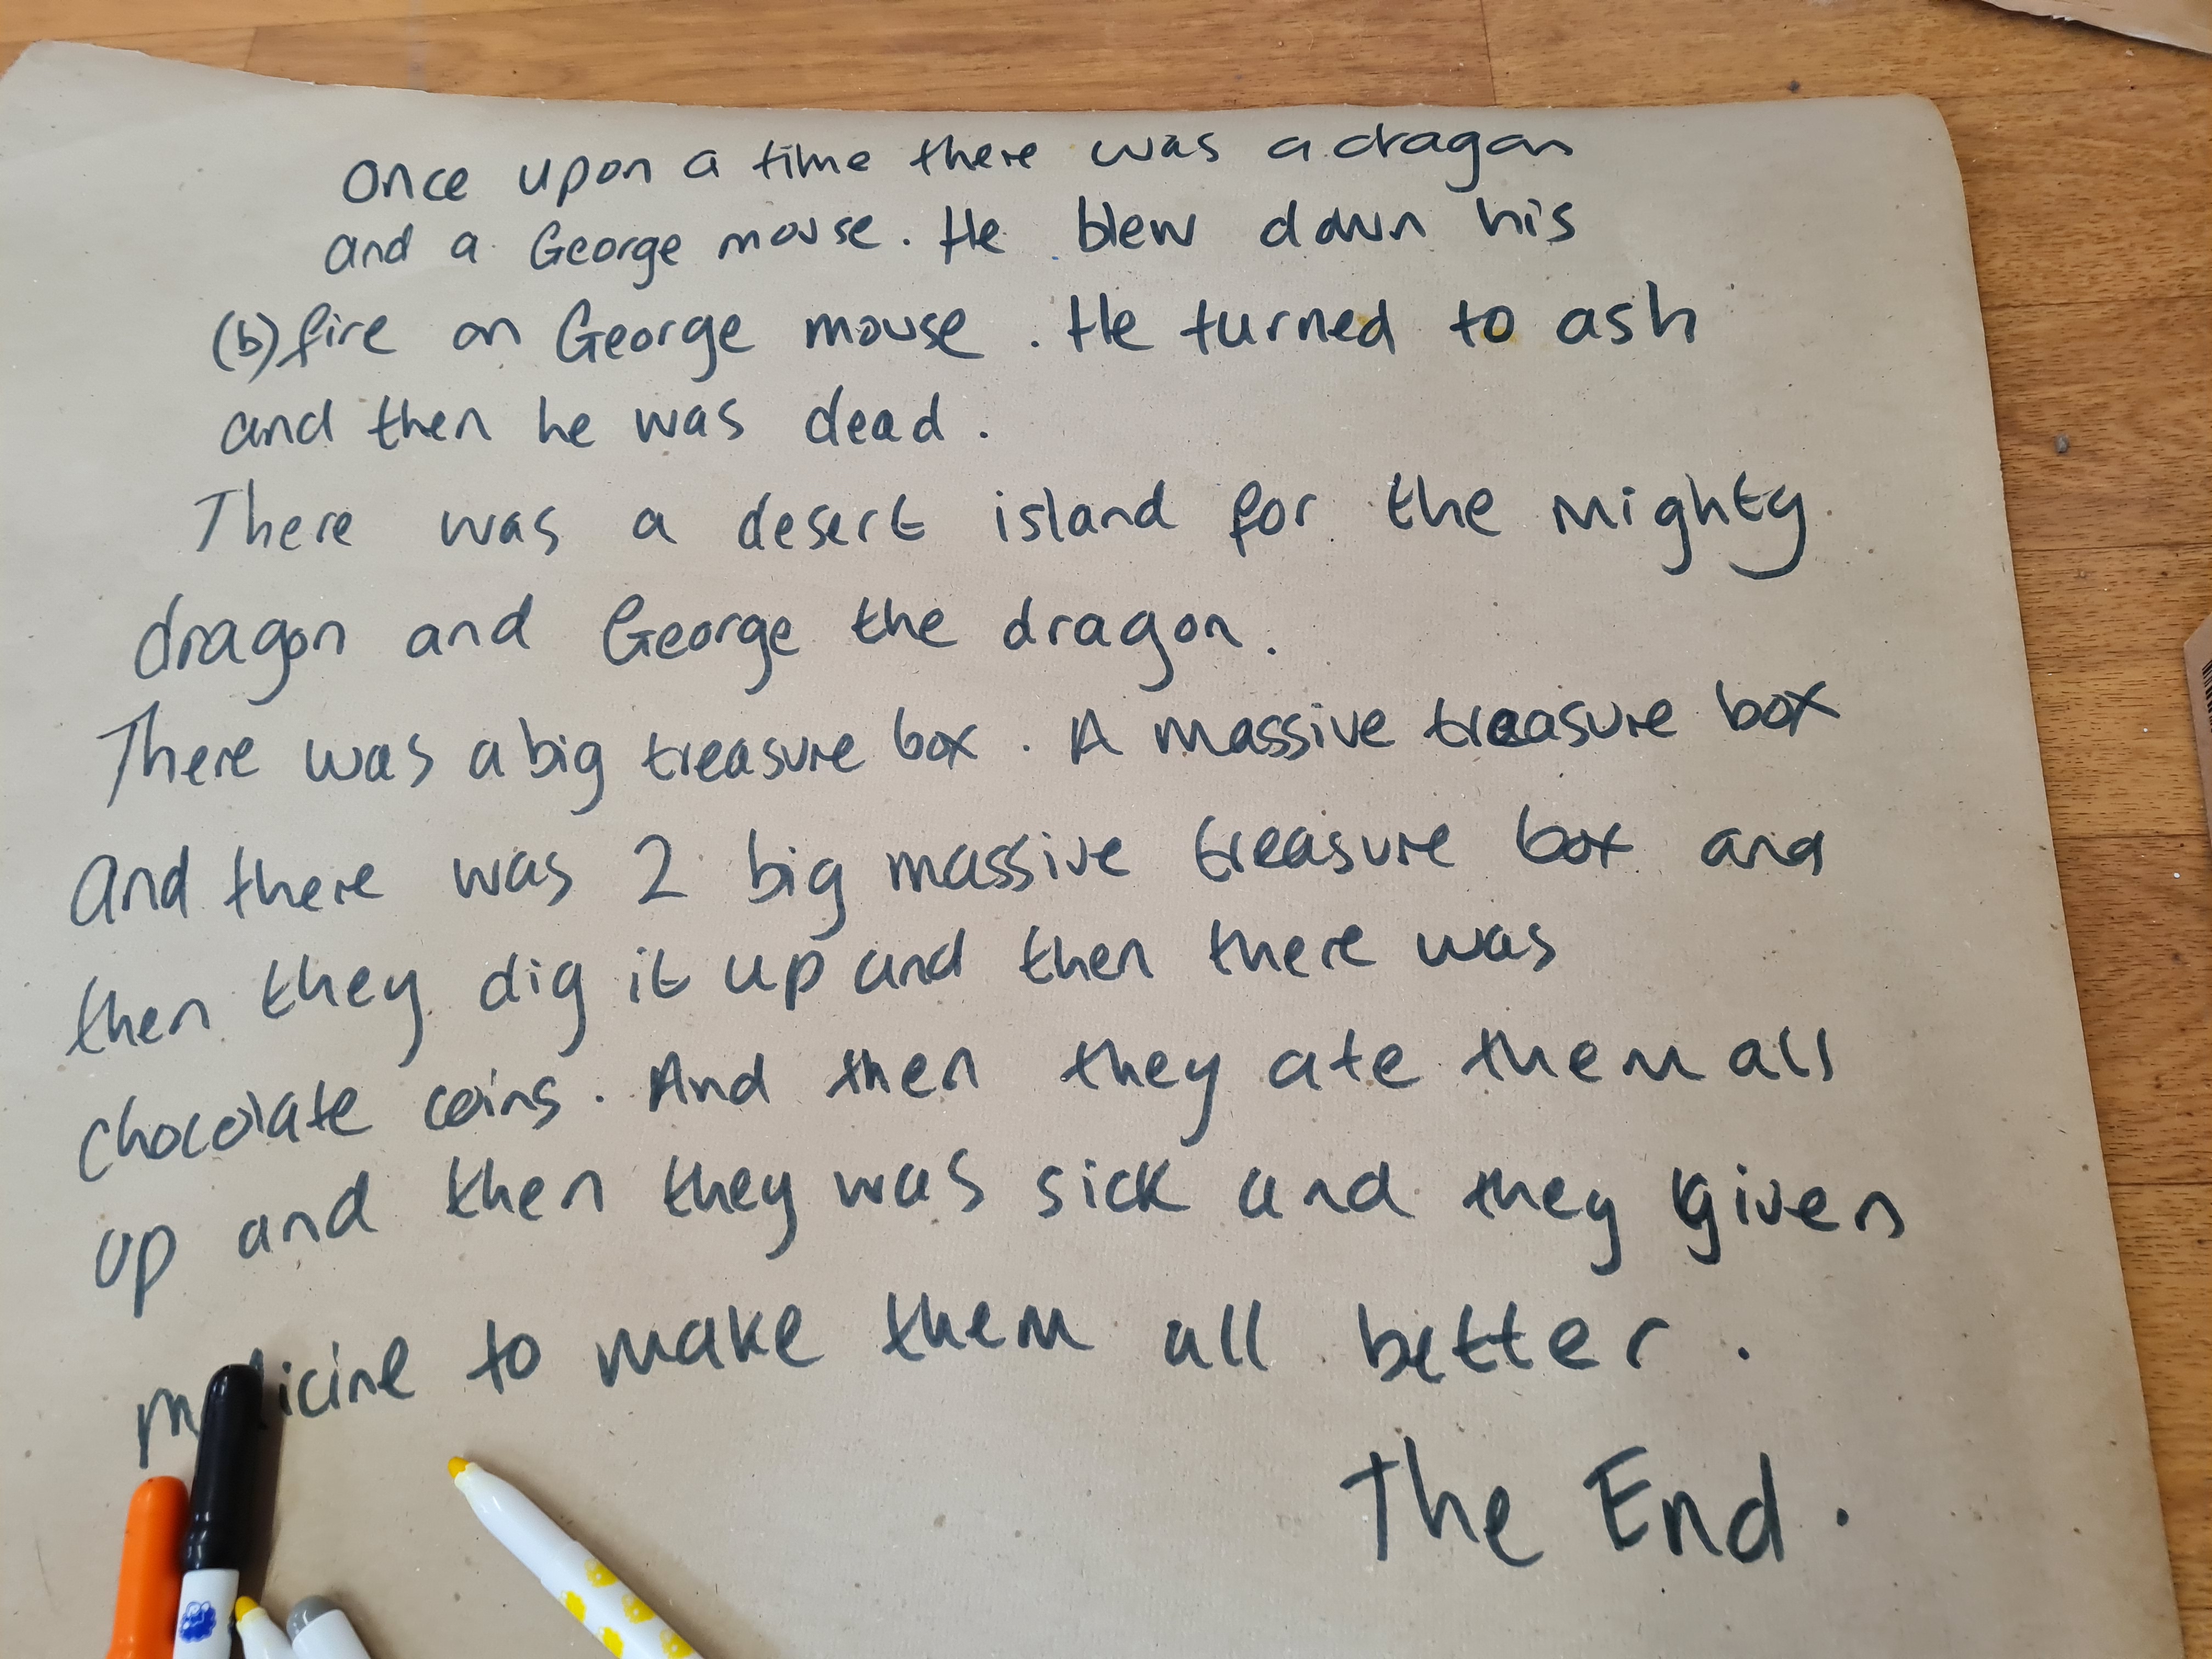 Once upon a time there was a dragon
and a George mouse. He blew down his
(b)fire on George mouse. He turned to ash
and then he was dead.
There was a desert island for the mighty
dragon and George the dragon.
There was a big treasure box. A massive treasure box
And there was 2 big massive treasure box and
then they dig it up and then there was
chocolate coins. And then they ate them all
up and then they was sick and they given
to make them all better.
The End.